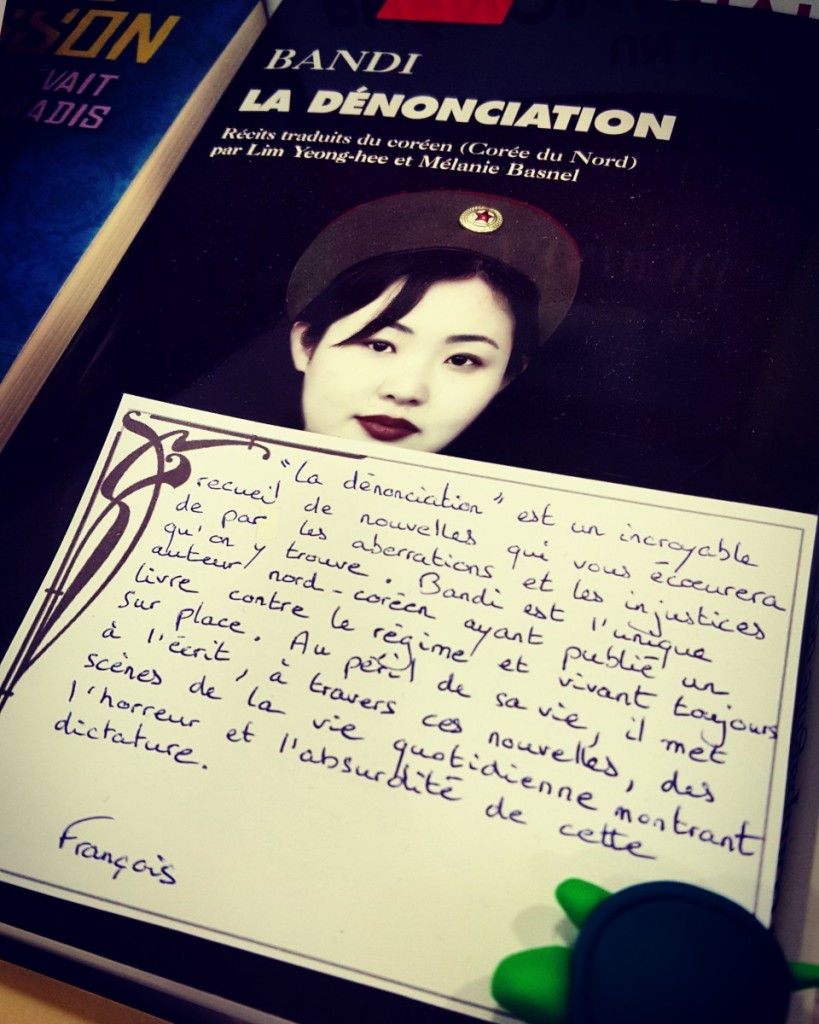 S'ON
VAIT
ADIS
BANDI
LA DÉNONCIATION
Récits traduits du coréen (Corée du Nord)
par Lim Yeong-hee et Mélanie Basnel
"La dénonciation" est un incroyable
recueil de nouvelles qui vous écoeurera
de par les aberrations et les injustices
qu'on y trouve. Bandi est l'unique
auteur nord-coréen ayant publié un
livre contre le régime et vivant toujours
sur place. Au péril de sa vie, il met
à l'écrit, à travers ces nouvelles, des
scènes de la vie quotidienne montrant
l'horreur et l'absurdité de cette
dictature.
François